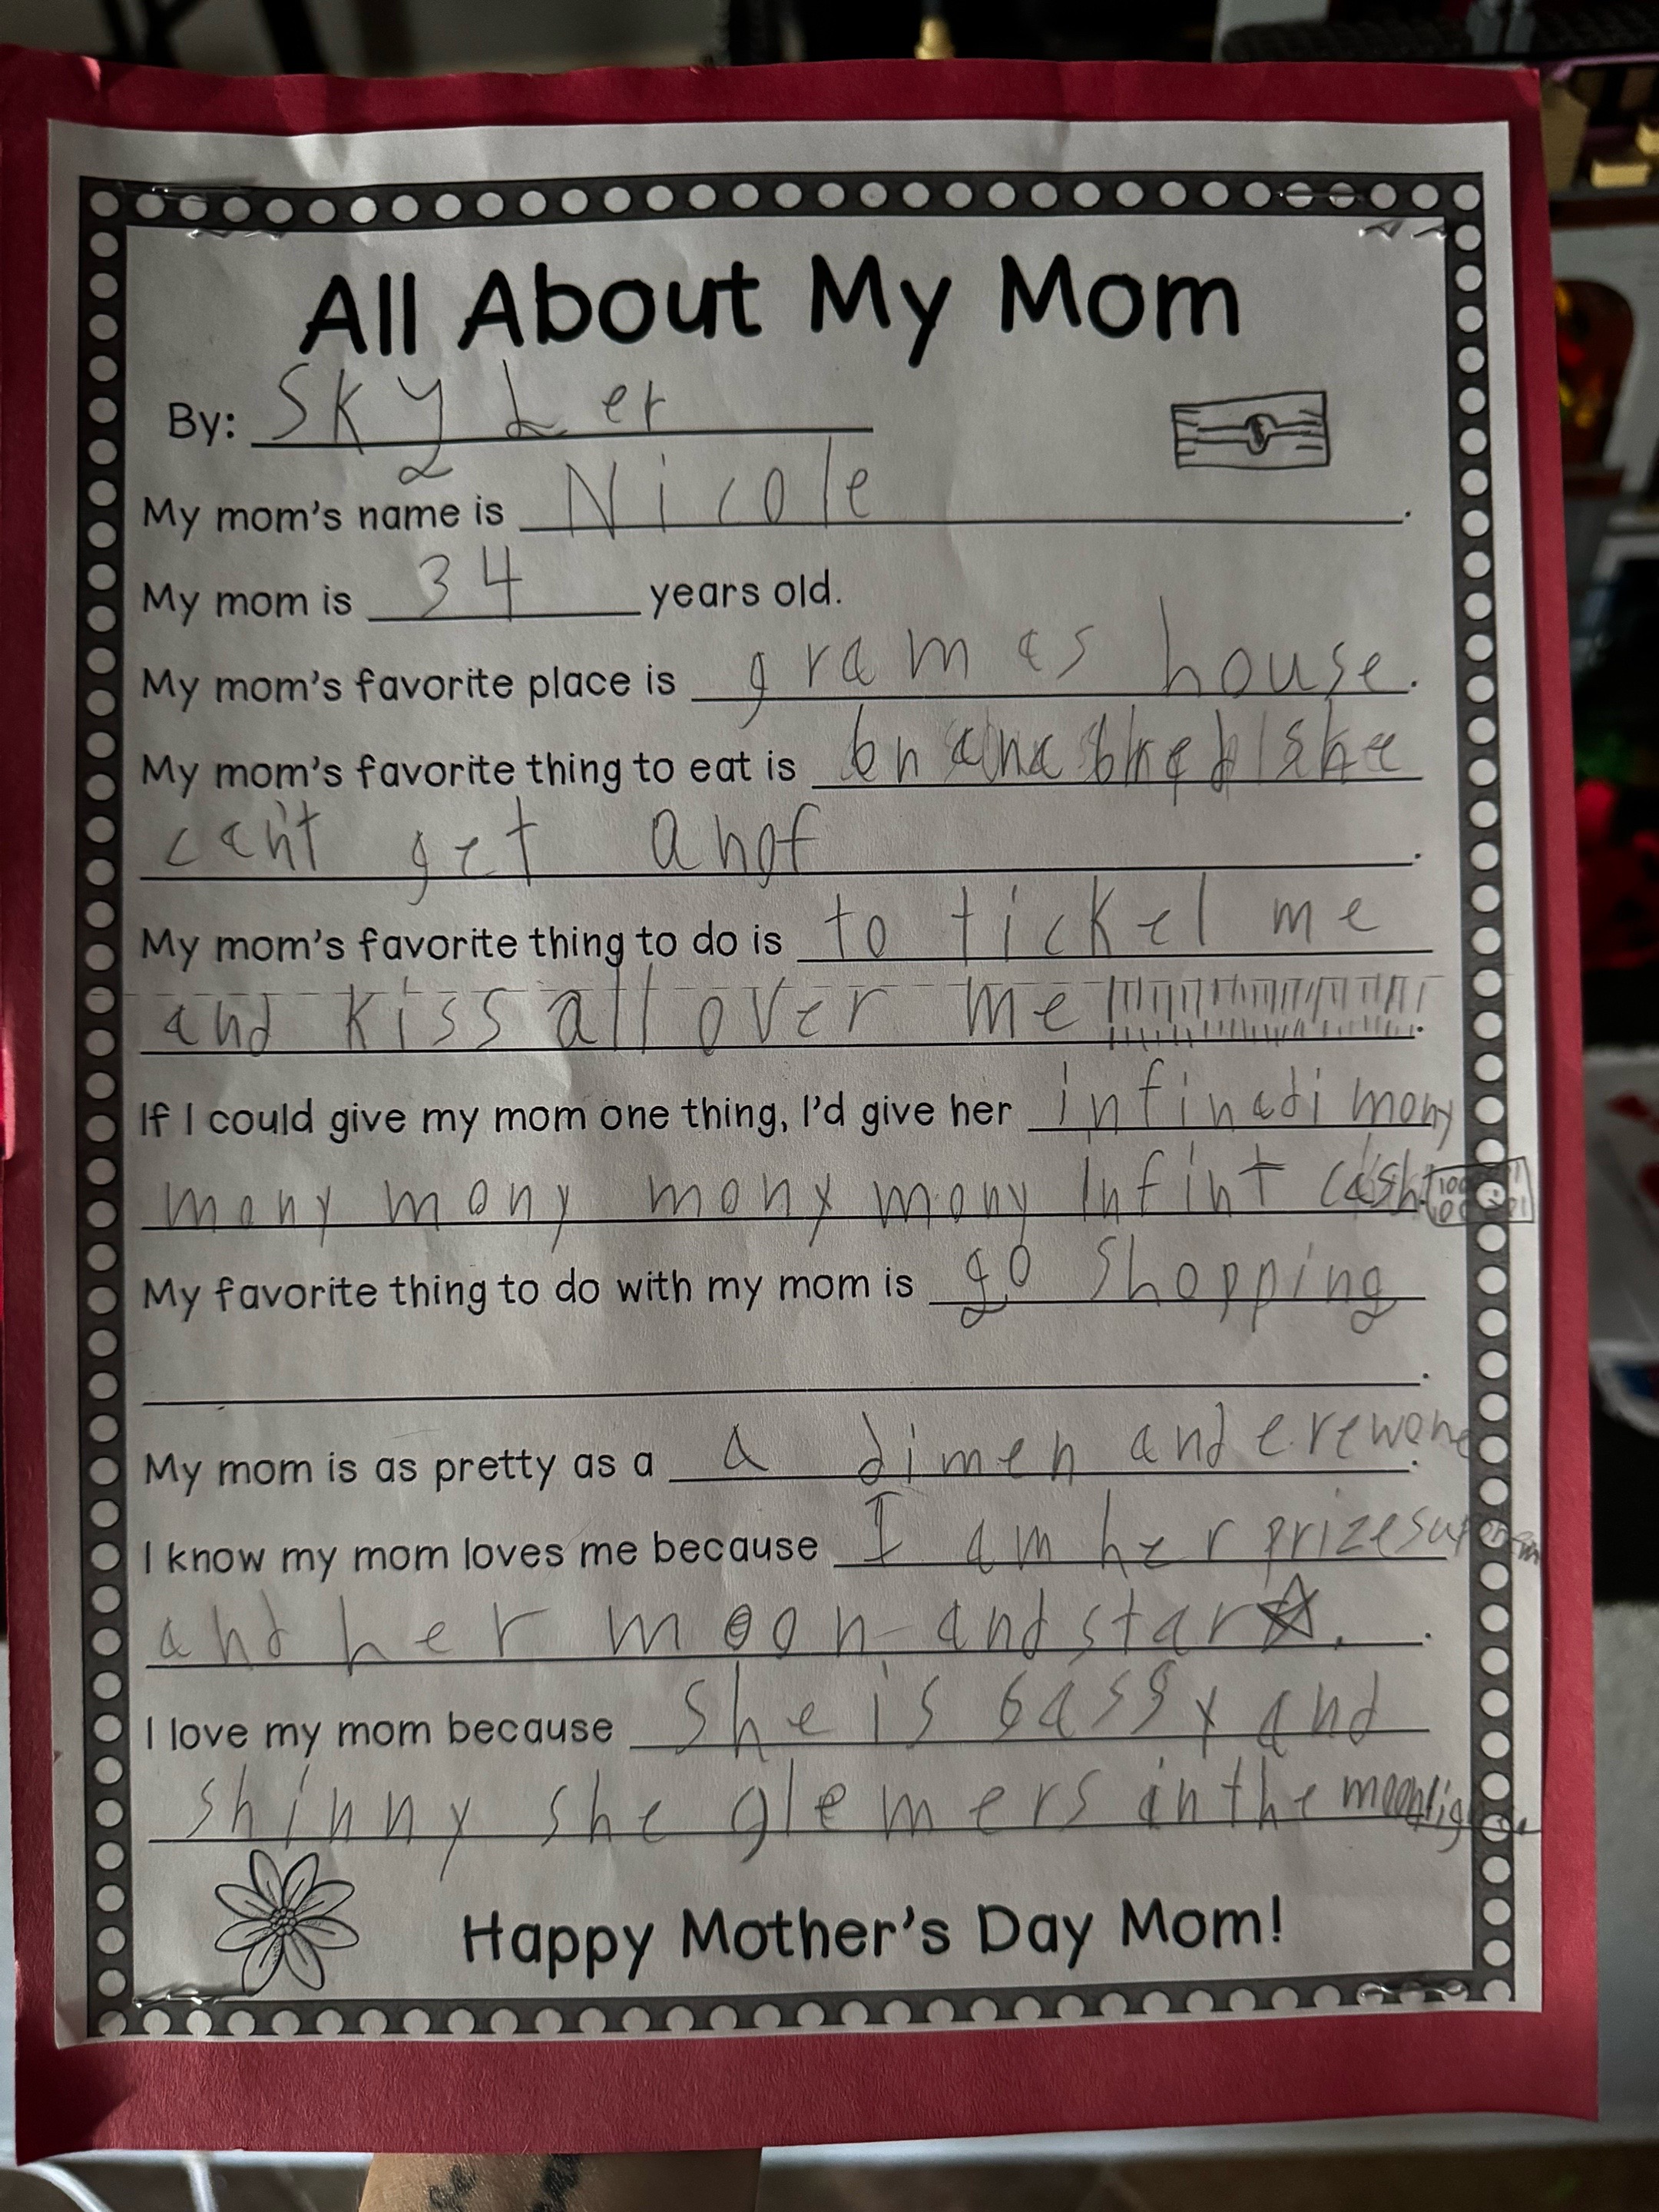 All About My Mom
By: Skyler
My mom's name is Nicole.
My mom is 34 years old.
My mom's favorite place is gramas house.
My mom's favorite thing to eat is bnana bred she
can't get anof.
My mom's favorite thing to do is to tickel me
and kiss all over me
If I could give my mom one thing, I'd give her infinadi mony
mony mony mony mony Infint cash.
My favorite thing to do with my mom is go shopping
.
My mom is as pretty as a a dimen and erewone.
I know my mom loves me because I am her prize
and her moon and star.
I love my mom because she is sassy and
shinny she glemers in the moonlight.
Happy Mother's Day Mom!